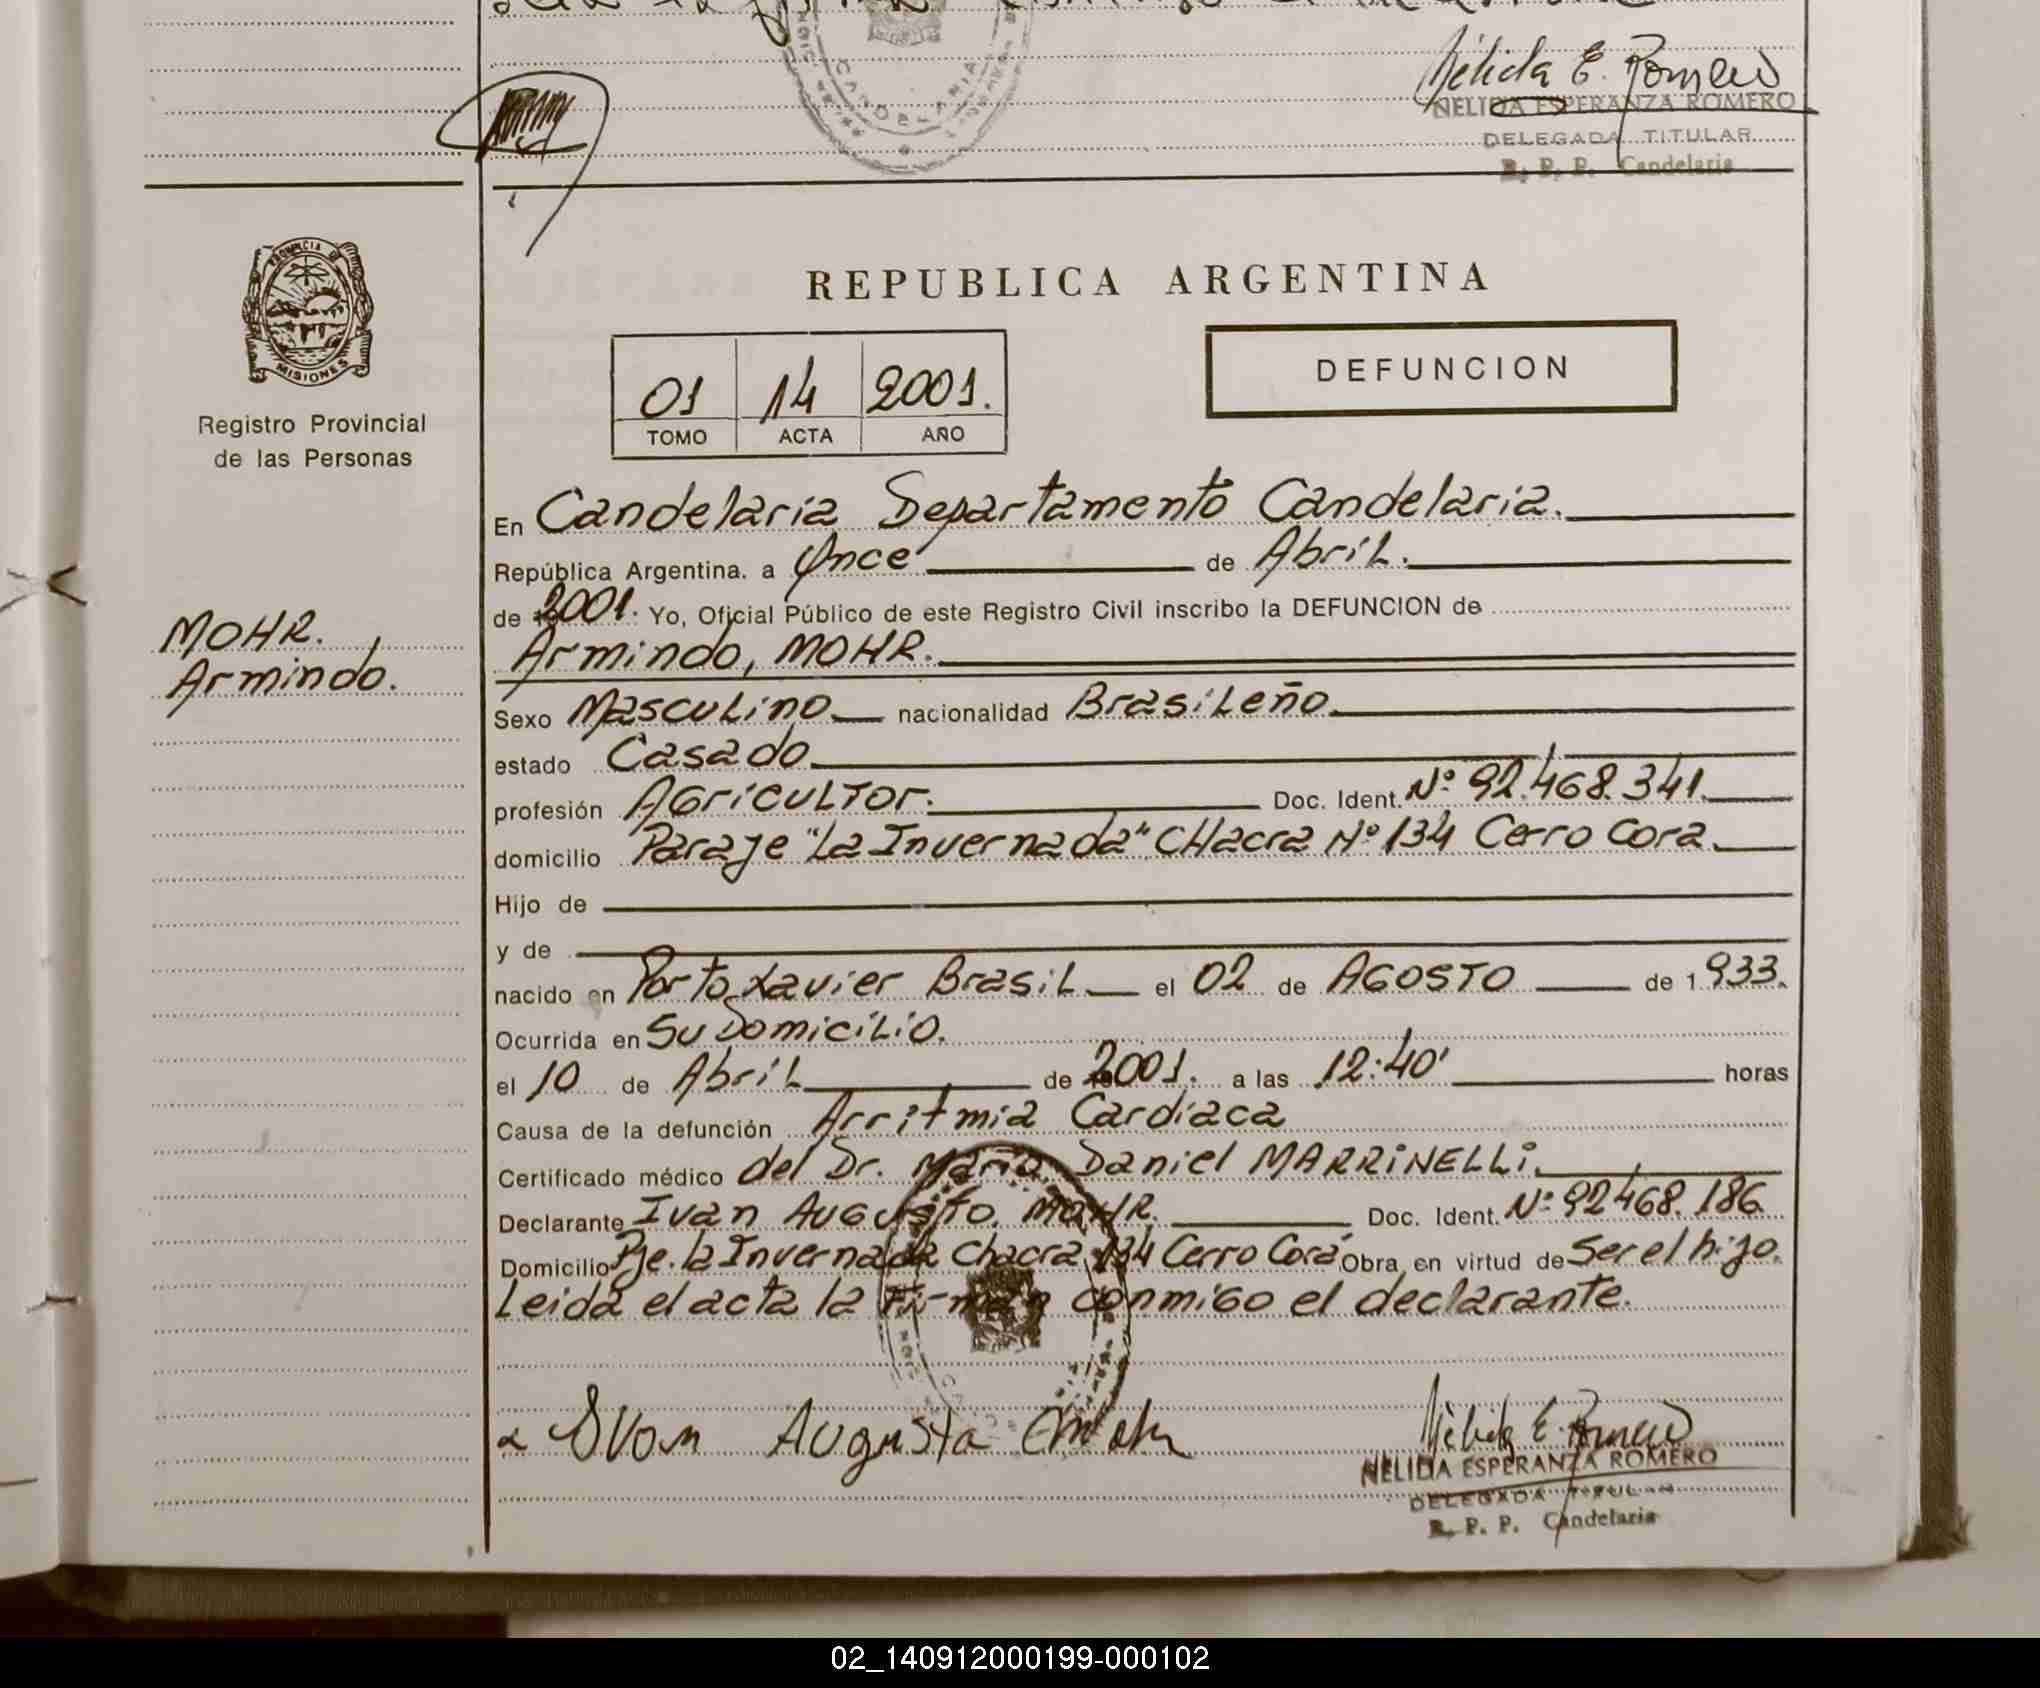 Nélida E. Romero
NELIDA ESPERANZA ROMERO
DELEGADA TITULAR
R. P. P. Candelaria
CANDELARIA
PROVINCIA DE
MISIONES
Registro Provincial
de las Personas
MOHR.
Armindo.
REPUBLICA ARGENTINA
DEFUNCION
01 14 2001.
TOMO ACTA AÑO
En Candelaria Departamento Candelaria.
República Argentina. a Once de Abril.
de 2001. Yo, Oficial Público de este Registro Civil inscribo la DEFUNCION de
Armindo, MOHR.
Sexo Masculino nacionalidad Brasileño
estado Casado
profesión Agricultor. Doc. Ident. Nº 92.468.341
domicilio Paraje "La Invernada" CHacra Nº 134 Cerro Cora
Hijo de
y de
nacido en Porto Xavier Brasil el 02 de AGOSTO de 1933.
Ocurrida en Su Domicilio.
el 10 de Abril de 2001. a las 12:40' horas
Causa de la defunción Arritmia Cardíaca
Certificado médico del Dr. Mario Daniel MARRINELLI.
Declarante Ivan Augusto MOHR. Doc. Ident. Nº 92468.186
Domicilio Pje. la Invernada Chacra 134 Cerro Corá Obra en virtud de Ser el hijo.
Leida el acta la Firman conmigo el declarante.
Ivon Augusta Mohr
Nélida E. Romero
NELIDA ESPERANZA ROMERO
DELEGADA TITULAR
R. P. P. Candelaria
02_140912000199-000102